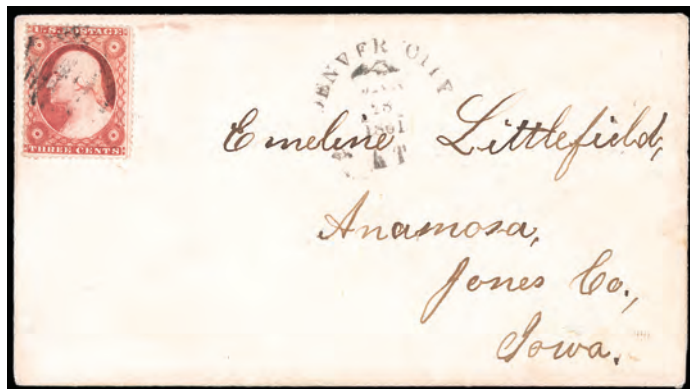 U.S. POSTAGE
THREE CENTS
DENVER CITY
28
1861
Emeline Littlefield,
Anamosa,
Jones Co.,
Iowa.